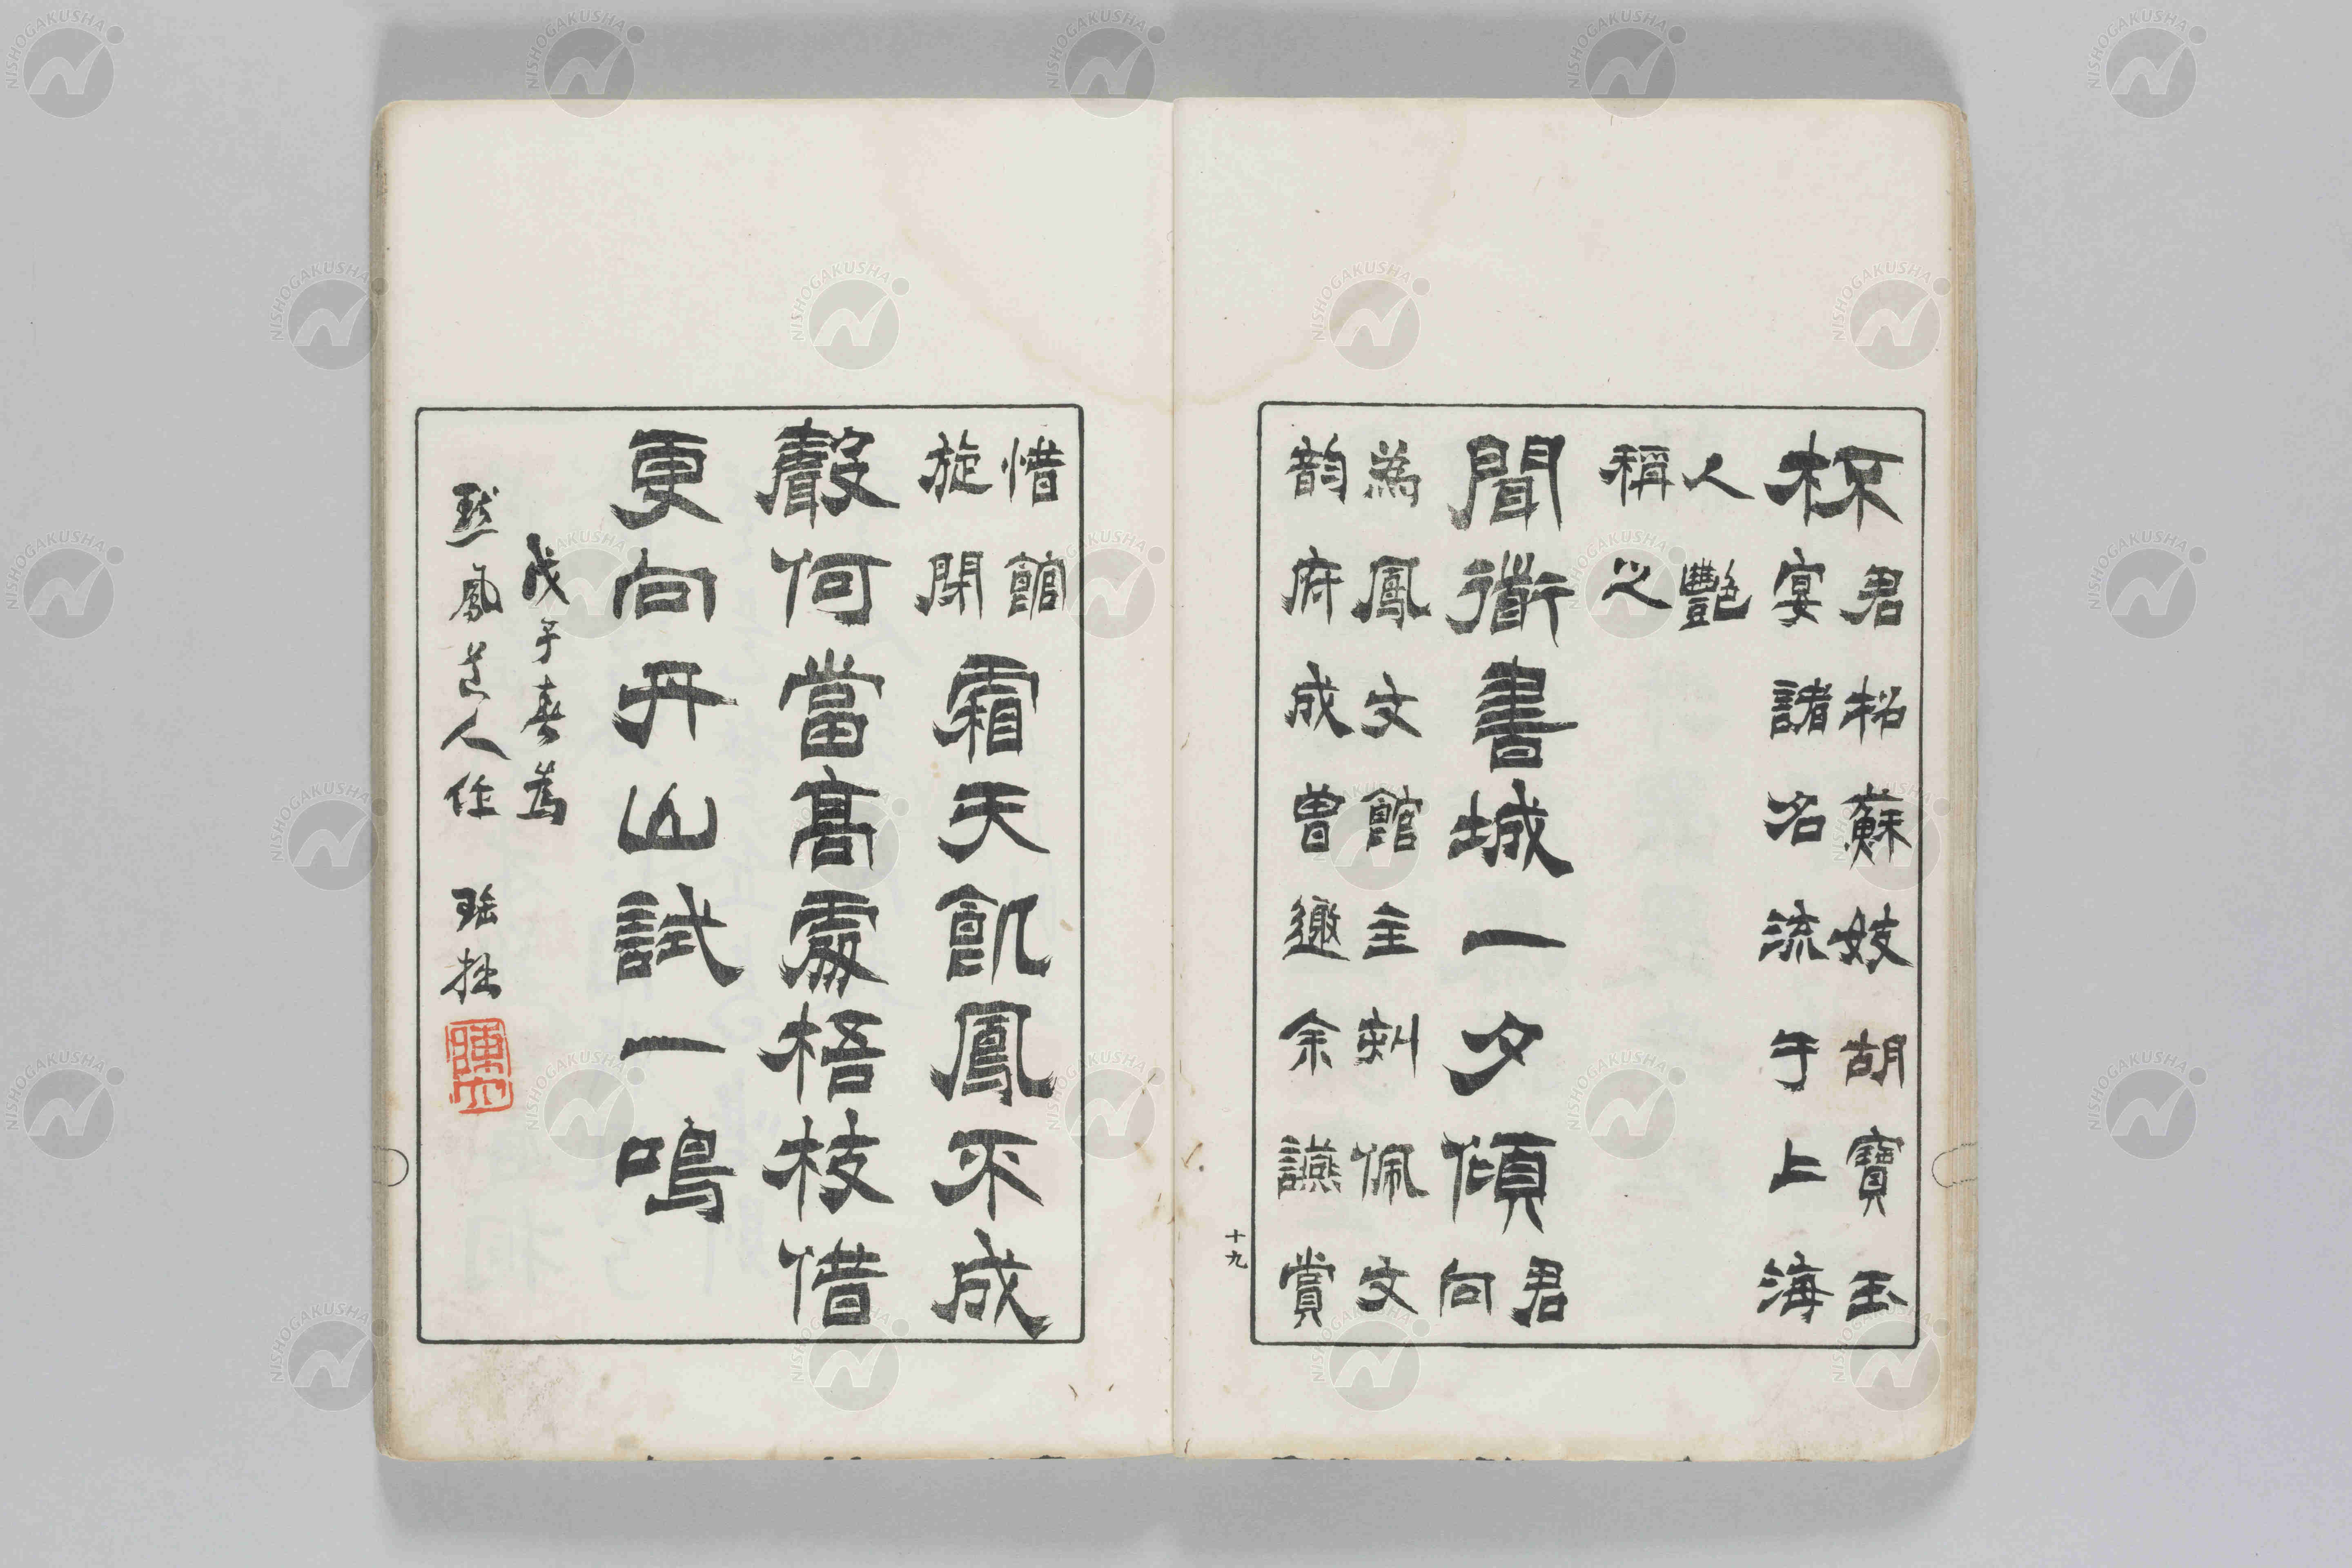 杯
君招蘇妓胡寶玉
宴諸名流于上海
人艷
稱之
聞衜書城一夕傾
君
向
為鳳文館主刻佩文
韵府成曾邀余讌賞
十九
惜館
旋閉
霜天飢鳳不成
聲何當高處梧枝借
更向丹山試一鳴
戊子春為
默鳳道人作
NISHOGAKUSHA